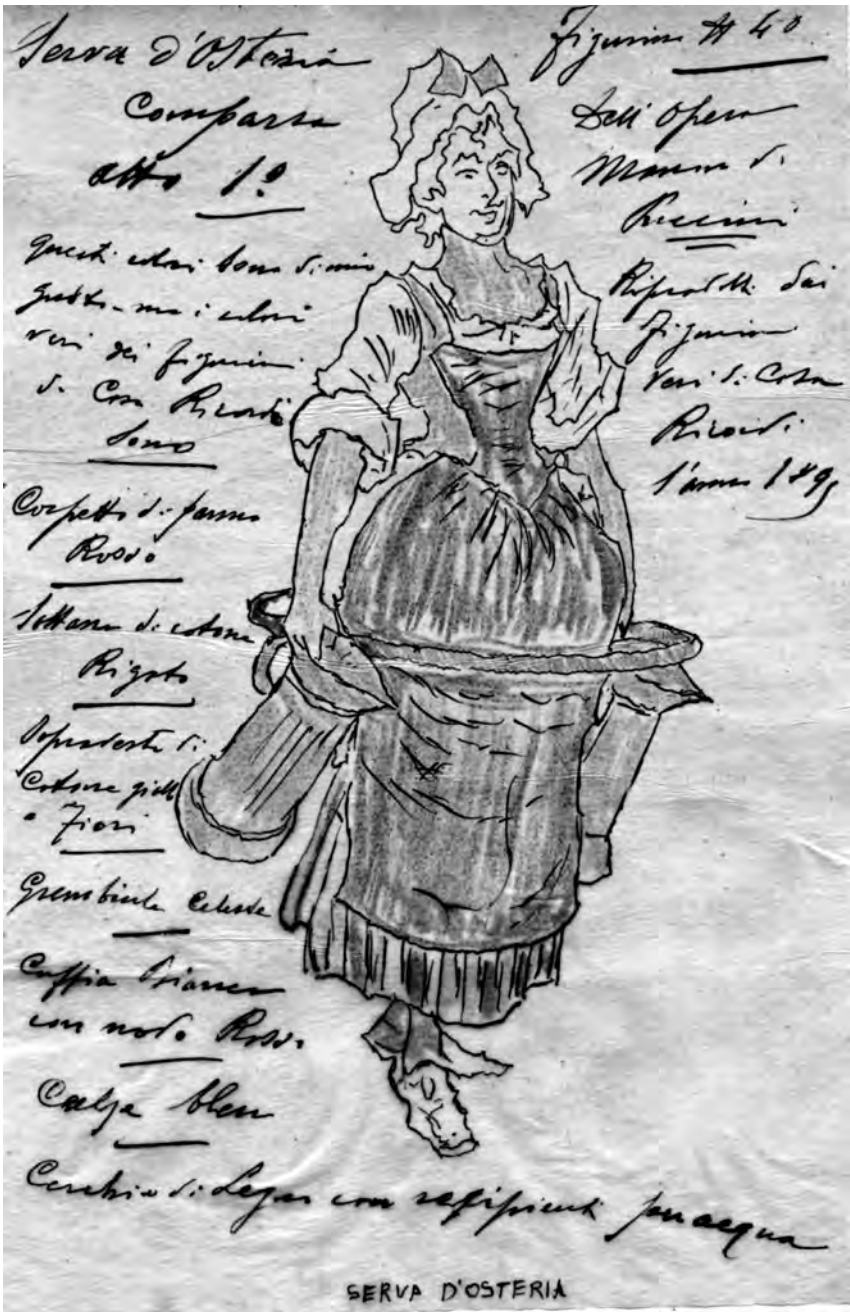 Serva d'Osteria
Comparsa
atto 1º
Questi colori sono di mio
gusto - ma i colori
veri dei figurini
di Casa Ricordi
sono
Corpetto di panno
Rosso
Sottana di cotone
Rigato
Sopraveste di
Cotone giallo
a Fiori
Grembiule Celeste
Cuffia Bianca
con nodo Rosso
Calza bleu
Cerchio di Legno con recipienti per acqua
Figurino # 40
Dell'Opera
Manon di
Puccini
Riprodotti dai
Figurini
veri di Casa
Ricordi
l'anno
SERVA D'OSTERIA